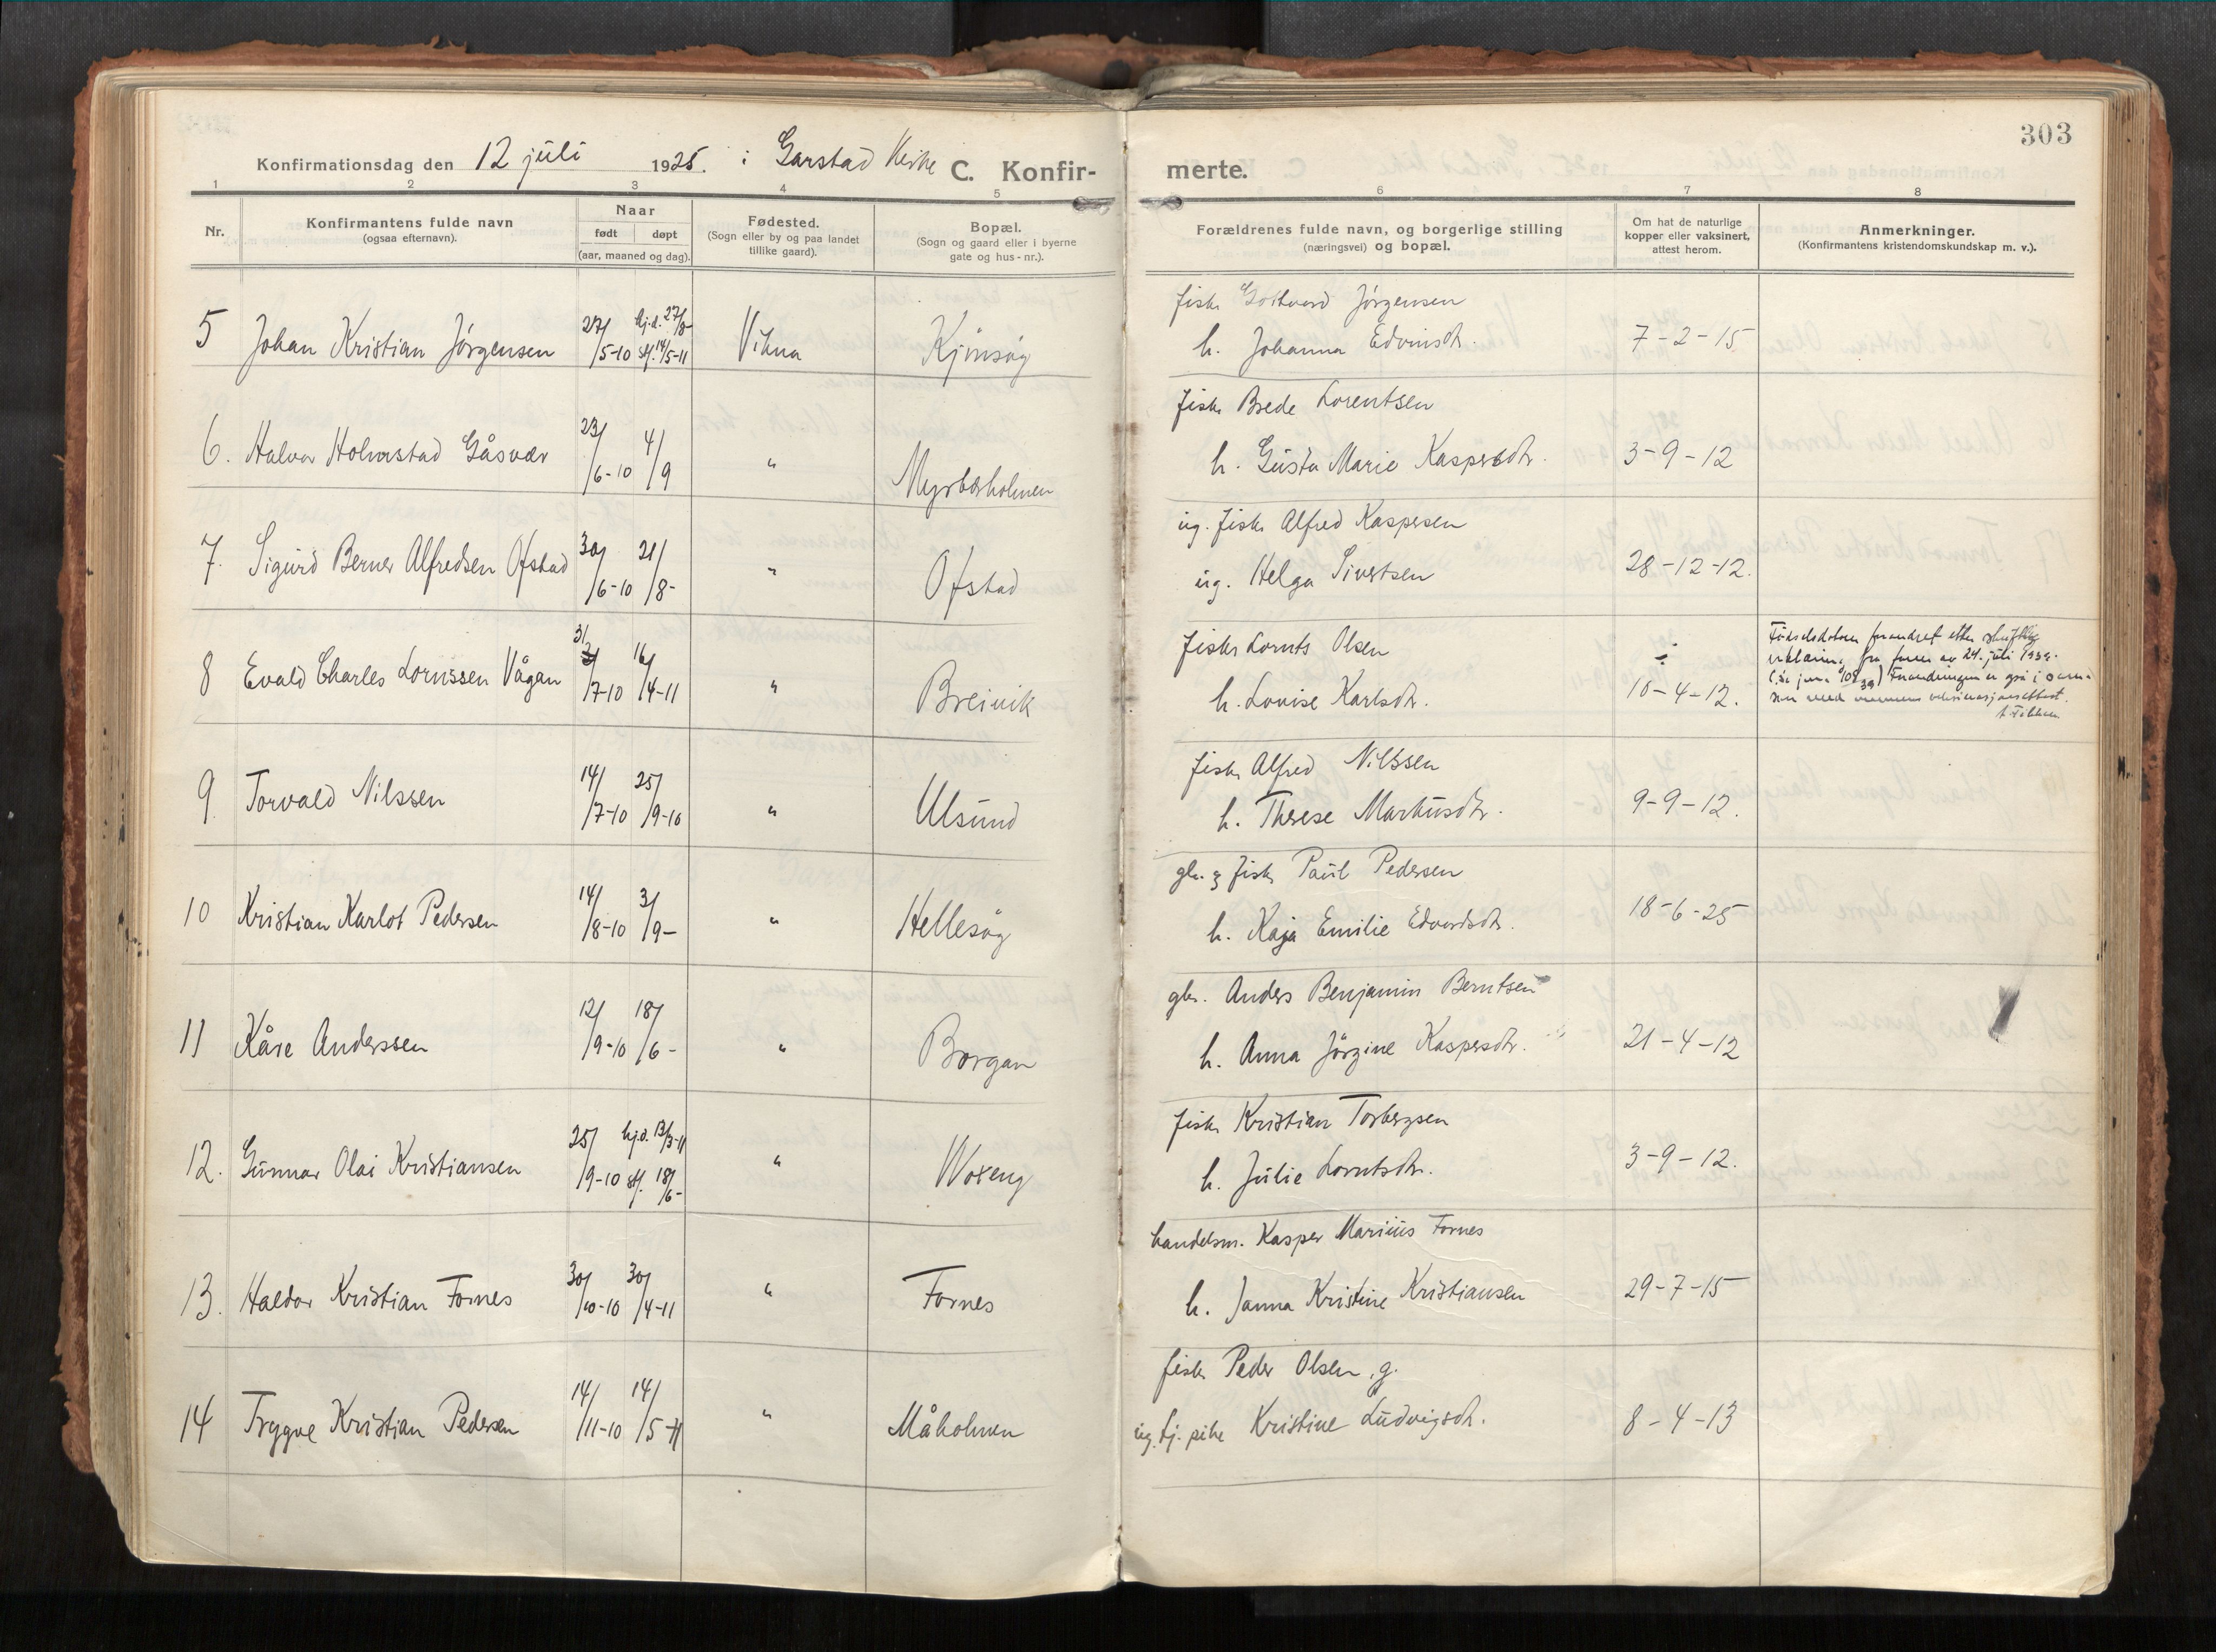 303
Konfirmationsdag den 12 juli 1925. i Garstad Kirke C. Konfirmerte.
1 2 3 4 5 6 7 8
Nr.
Konfirmantens fulde navn
(ogsaa efternavn).
Naar
født døpt
(aar, maaned og dag).
Fødested.
(Sogn eller by og paa landet
tillike gaard).
Bopæl.
(Sogn og gaard eller i byerne
gate og hus-nr.).
Forældrenes fulde navn, og borgerlige stilling
(næringsvei) og bopæl.
Om hat de naturlige
kopper eller vaksinert,
attest herom.
Anmerkninger.
(Konfirmantens kristendomskundskap m. v.).
fisk. Gothard Jörgensen
5 Johan Kristian Jörgensen 27/5-10 hj.d. 27/8- stf. 14/5-11 Vikna Kjinsøy h. Johanna Edvinsdtr. 7-2-15
fisk. Brede Lorentsen
6. Halvor Holmstad Gåsvær 23/6-10 4/9 " Myrbærholmen h. Gusta Marie Kaspersdtr. 3-9-12
ug. fisk. Alfred Kaspersen
7. Sigurd Berner Alfredsen Ofstad 30/6-10 21/8- " Ofstad ug. Helga Sivertsen 28-12-12.
fisk. Lornts Olsen ÷
8 Evald Charles Lorntssen Vågan 31/7-10 16/4-11 " Breivik h. Lovise Karlsdtr. 10-4-12.
Födselsdatoen forandret etter skriftlig
erklæring fra faren av 24. juli 1939.
fisk. Alfred Nilssen
9 Torvald Nilssen 14/7-10 25/9-10 " Ulsund h. Therese Markusdtr. 9-9-12.
gbr. og fisk. Paul Pedersen
10 Kristian Karlot Pedersen 14/8-10 3/9- " Hellesøy h. Kaja Emilie Edvardsdtr. 18-6-25
gbr. Anders Benjamin Berntsen
11 Kåre Anderssen 12/9-10 18/6- " Borgan h. Anna Jörgine Kaspersdtr. 21-4-12
fisk. Kristian Torbergsen
12. Gunnar Olai Kristiansen 25/9-10 hj.d. 13/3-11 stf. 18/6- " Woxeng h. Julie Lorntsdtr. 3-9-12.
handelsm. Kasper Marius Fornes
13. Haldor Kristian Fornes 30/10-10 30/4-11 " Fornes h. Janna Kristine Kristiansen 29-7-15
fisk. Peder Olsen, g.
14 Trygve Kristian Pedersen 14/11-10 14/5-11 " Måholmen ug. tj. pike Kristine Ludvigsdtr. 8-4-13